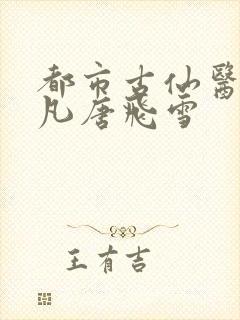 都市古仙醫
凡唐飛雪
王有吉